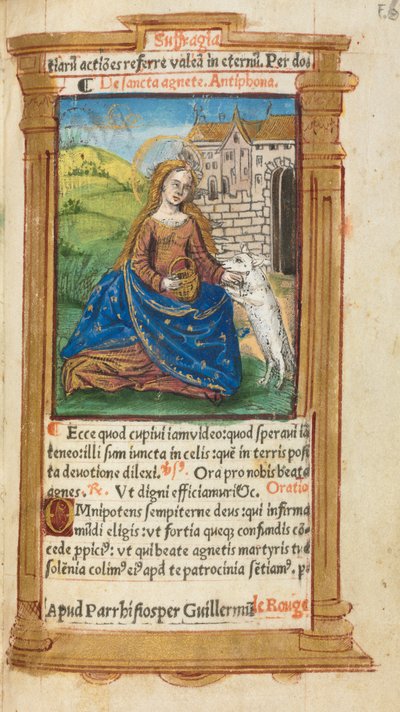 Suffragia
tiarū actiões referre valeā in eternū. Per do
¶ De sancta agnete. Antiphona.
¶ Ecce quod cupivi iam video: quod speravi iā
teneo: illi sum iuncta in celis: quē in terris posi
ta devotione dilexi. Ora pro nobis beata
agnes. ℟. Ut digni efficiamur &c. Oratio
OMnipotens sempiterne deus: qui infirma
mūdi eligis: ut fortia queqꝫ confundis: cō
cede ppici⁹: ut qui beate agnetis martyris tue
solēnia colim⁹ ei⁹ apd te patrocinia sētiam⁹. p.
Apud Parrhisios per Guillermū le Rouge